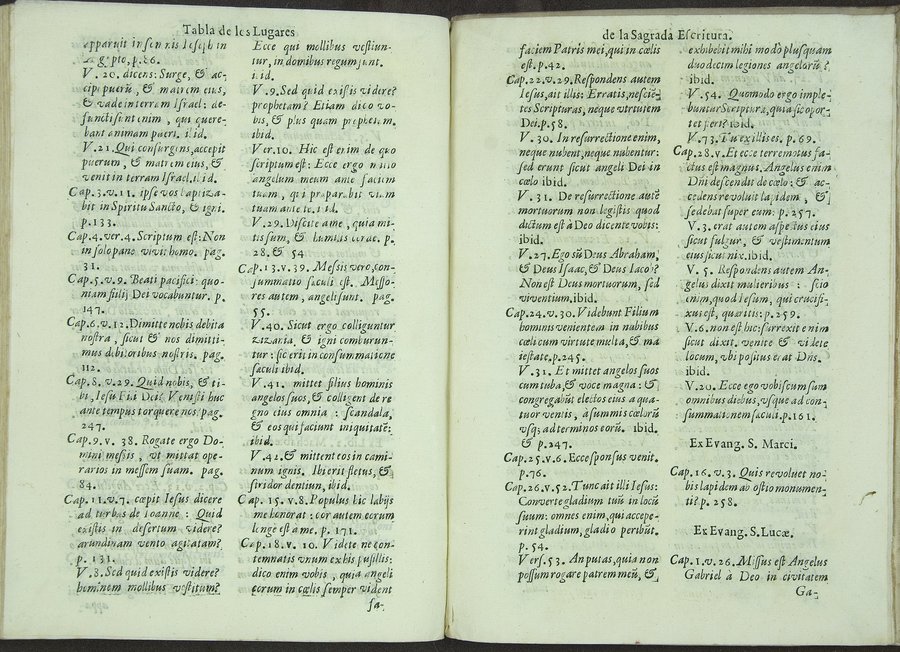 Tabla de los Lugares
apparuit in somnis Ioseph in
Ægypto, p.86.
V. 20. dicens: Surge, & ac-
cipe puerũ, & matrem eius,
& vade in terram Israel: de-
functi sunt enim, qui quere-
bant animam pueri. ibid.
V.21. Qui consurgens, accepit
puerum, & matrem eius, &
venit in terram Israel. ibid.
Cap.3.v.11. ipse vos baptiza-
bit in Spiritu Sancto, & igni.
p.133.
Cap.4.ver.4. Scriptum est: Non
in solo pane vivit homo. pag.
31.
Cap.5.v.9. Beati pacifici: quo-
niam filij Dei vocabuntur. p.
147.
Cap.6.v.12. Dimitte nobis debita
nostra, sicut & nos dimitti-
mus debitoribus nostris. pag.
112.
Cap.8. v.29. Quid nobis, & ti-
bi, Iesu Fili Dei? Venisti huc
ante tempus torquere nos? pag.
247.
Cap.9.v. 38. Rogate ergo Do-
mini messis, vt mittat ope-
rarios in messem suam. pag.
84.
Cap.11.v.7. cœpit Iesus dicere
ad turbas de Ioanne: Quid
existis in desertum videre?
arundinam vento agitatam?
p. 131.
V.8. Sed quid existis videre?
hominem mollibus vestitum?
Ecce qui mollibus vestiun-
tur, in domibus regum sunt.
ibid.
V.9. Sed quid existis videre?
prophetam? Etiam dico vo-
bis, & plus quam prophetam.
ibid.
Ver.10. Hic est enim de quo
scriptum est: Ecce ego mitto
angelum meum ante faciem
tuam, qui præparabit viam
tuam ante te. ibid.
V.29. Discite a me, quia mi-
tis sum, & humilis corde. p.
28. & 54
Cap.13.v.39. Messis vero, con-
summatio sæculi est. Messo-
res autem, angeli sunt. pag.
55.
V.40. Sicut ergo colliguntur
zizania, & igni comburun-
tur: sic erit in consummatione
sæculi ibid.
V.41. mittet filius hominis
angelos suos, & colligent de re
gno eius omnia : scandala,
& eos qui faciunt iniquitatẽ:
ibid.
V.42. & mittent eos in cami-
num ignis. Ibi erit fletus, &
stridor dentiun, ibid.
Cap. 15. v.8. Populus hic labijs
me honorat: cor autem eorum
longe est a me. p. 171.
Cap.18.v. 10. Videte ne con-
temnatis vnum ex his pusillis:
dico enim vobis, quia angeli
eorum in cœlis semper vident
fa-
de la Sagrada Escritura.
faciem Patris mei, qui in cœlis
est. p.42.
Cap.22.v.29. Respondens autem
Iesus, ait illis: Erratis, nesciẽ-
tes Scripturas, neque virtutem
Dei. p.58.
V.30. In resurrectione enim,
neque nubent, neque nubentur:
sed erunt sicut angeli Dei in
cœlo ibid.
V.31. De resurrectione autẽ
mortuorum non legistis quod
dictum est à Deo dicente vobis:
ibid.
V.27. Ego sũ Deus Abraham,
& Deus Isaac, & Deus Iacob?
Non est Deus mortuorum, sed
viventium, ibid.
Cap.24.v.30. Videbunt Filium
hominis venientem in nubibus
cœli cum virtute multa, & ma
iestate. p.245.
V.31. Et mittet angelos suos
cum tuba, & voce magna: &
congregabũt electos eius a qua-
tuor ventis, à summis cœlorũ
vsq; ad terminos eorũ. ibid.
& p.247.
Cap.25.v.6. Ecce sponsus venit.
p.76.
Cap.26.v.52. Tunc ait illi Iesus:
Converte gladium tuũ in locũ
suum: omnes enim, qui accepe-
rint gladium, gladio peribũt.
p.54.
Vers.53. An putas, quia non
possum rogare patrem meũ, &
exhibebit mihi modò plusquam
duodecim legiones angelorũ?
ibid.
V.54. Quomodo ergo imple-
buntur Scripturæ, quia sic opor-
tet fieri? ibid.
V.73. Tu ex illis es. p.69.
Cap.28.v. Et ecce terremotus fa-
ctus est magnus. Angelus enim
Dñi descendit de cœlo: & ac-
cedens revoluit lapidem, &
sedebat super eum: p.257.
V.3. erat autem aspectus eius
sicut fulgur, & vestimentum
eius sicut nix. ibid.
V.5. Respondens autem An-
gelus dixit mulieribus: scio
enim, quod Iesum, qui crucifi-
xus est, quæritis: p.259.
V.6. non est hic: surrexit enim
sicut dixit. venite & videte
locum, vbi positus erat Dñs.
ibid.
V.20. Ecce ego vobiscum sum
omnibus diebus, vsque ad con-
summationem sæculi. p.161.
Ex Evang. S. Marci.
Cap.16.v.3. Quis revoluet no-
bis lapidem ab ostio monumen-
ti? p.258.
Ex Evang. S. Lucæ.
Cap.1.v.26. Missus est Angelus
Gabriel à Deo in civitatem
Ga-